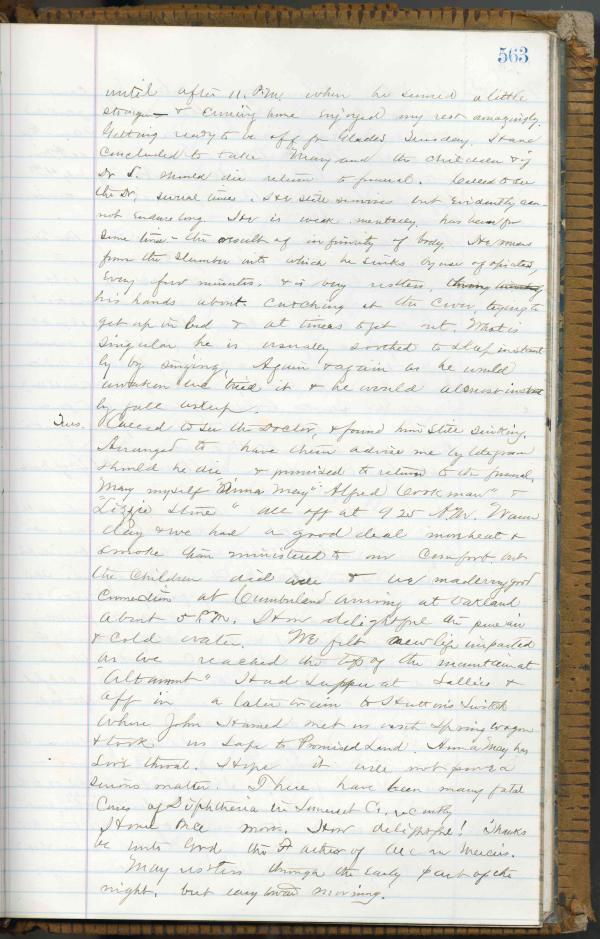 563
until after 11. P.M. when he seemed a little
stronger & coming home enjoyed my rest amazingly.
Getting ready to be off for Glades Tuesday. Have
concluded to take May and the children & if
Dr S. should die return to funeral. Called to see
the Dr. several times. He still survives but evidently can
not endure long. He is weak mentally, has been for
some time - the result of infirmity of body. He rouses
from the slumber into which he sinks by use of opiates,
every few minutes. & is very restless,
his hands about. Catching at the cover, trying to
get up in bed & at times to get out. What is
singular he is usually soothed to sleep instant
ly by singing. Again & again as he would
awaken we tried it & he would almost instant
ly fall asleep.
Tues. Called to see the Doctor, & found him still sinking.
Arranged to have them advise me by telegram
should he die & promised to return to the funeral.
May myself "Anna May" Alfred Cookman" &
"Lizzie Stone" all off at 9 25 A.M. Warm
day & we had a good deal more heat &
smoke than ministered to our comfort. but
the children did well & we made very good
connection at Cumberland arriving at Oakland
about 5 P.M. How delightful the pure air
& cold water. We felt new life imparted
as we reached the top of the mountain at
"Altamont" Had supper at Sallies &
off in a later train to Huttons Switch
where John Hamed met us with spring wagon
& took us safe to Promised Land. Anna May has
sore throat. Hope it will not prove a
serious matter. There have been many fatal
cases of Diphtheria in Somerset Co. recently
Home once more. How delightful! Thanks
be unto God the Father of all our mercies.
May restless through the early part of the
night, but easy toward morning.